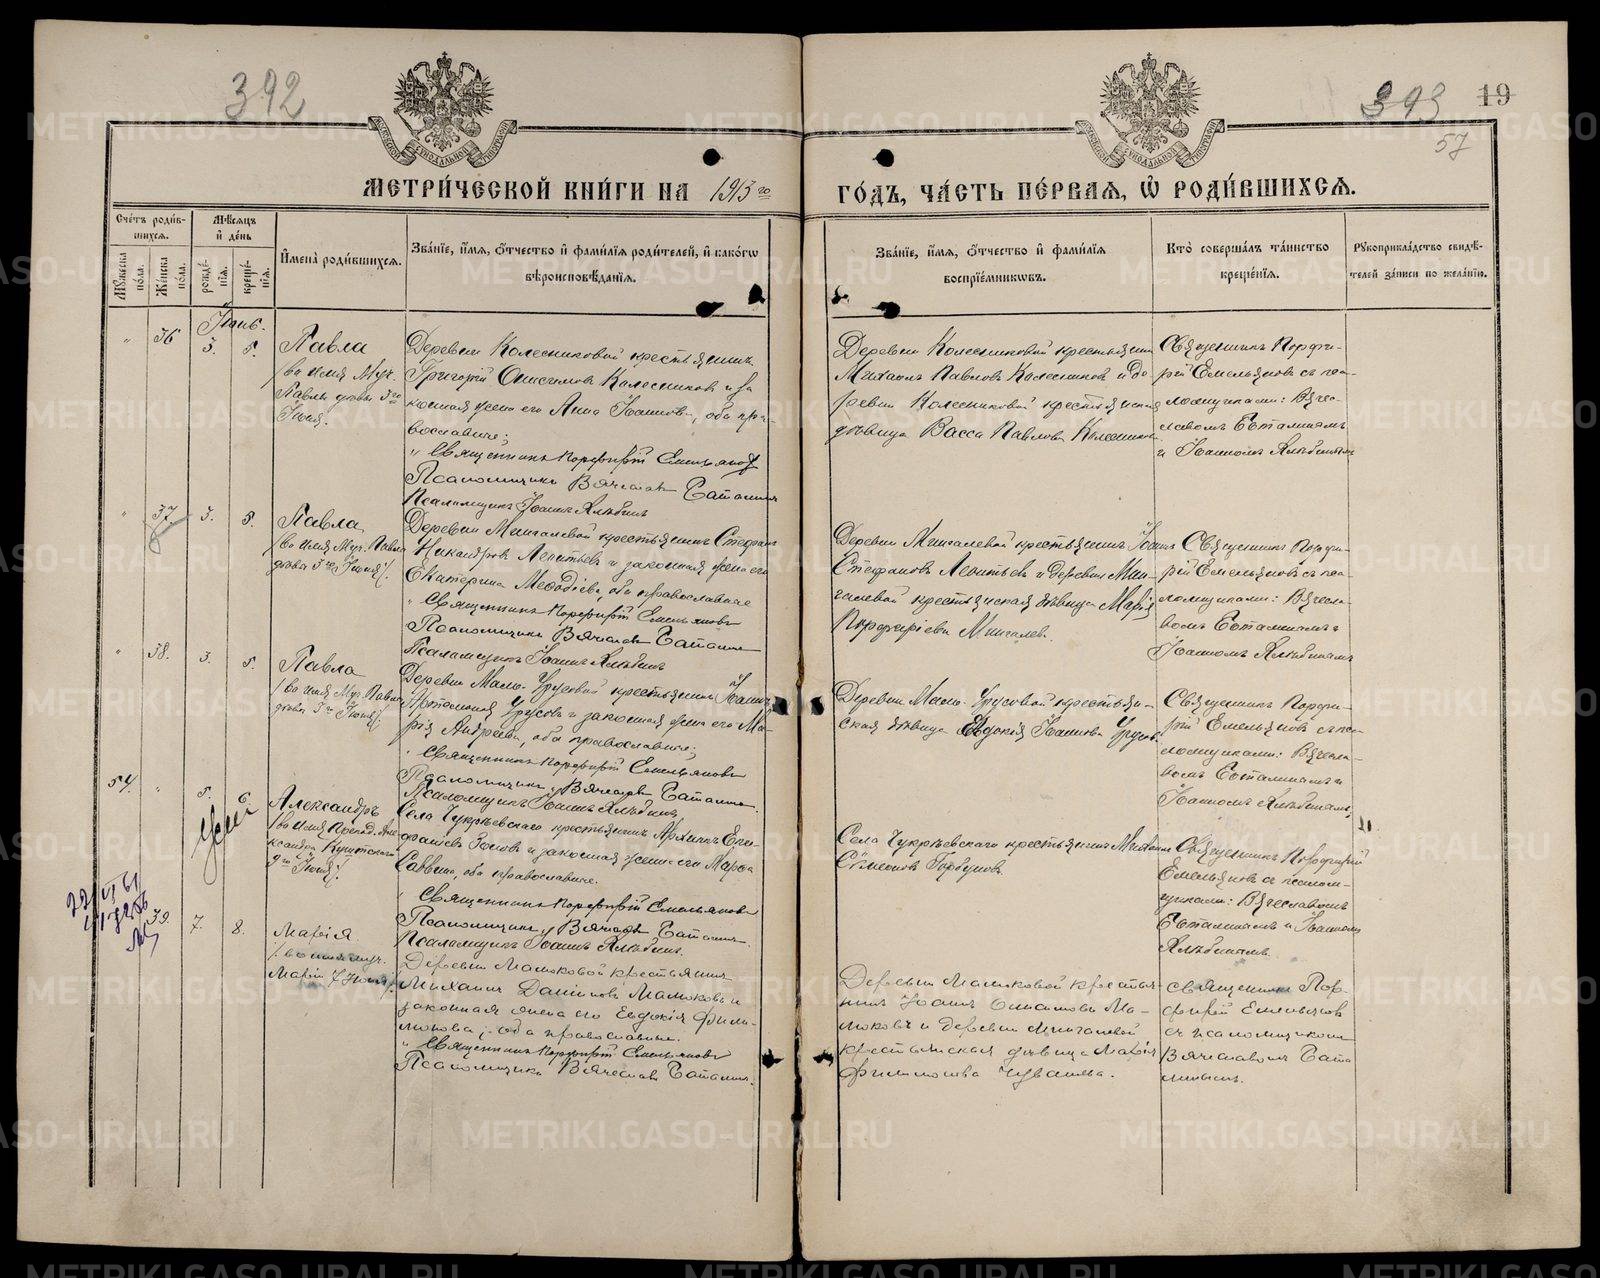 392
393
19
57
МЕТРИ́ЧЕСКОЙ КНИ́ГИ НА 1913 го
ГО́ДЪ, ЧА́СТЬ ПЕ́РВАЯ, Ѡ РОДИ́ВШИХСЯ.
Сче́тъ роди́в-
шихся.
Мѣ́сяцъ
и҆ де́нь
Мꙋ́жеска
по́ла.
Же́нска
по́ла.
рожде́-
нїѧ.
креще́-
нїѧ.
И҆мена̀ роди́вшихся.
Зва́нїе, и҆́мѧ, ѻ҆́тчество и҆ фами́лїѧ роди́телей, и҆ како́гѡ
вѣроисповѣ́данїѧ.
Зва́нїе, и҆́мѧ, ѻ҆́тчество и҆ фами́лїѧ
воспрїе́мникѡвъ.
Кто̀ соверша́лъ та́инство
креще́нїѧ.
Рꙋкоприкла́дство свидѣ́-
телей за́писи по жела́нїю.
Іюнь.
" 36 3. 5.
Павла
/во имя Муч.
Павлы 3го
Іюня.
Деревни Колесниковой крестьянинъ
Григорій Онисимовъ Колесниковъ и за
конная жена его Анна Іоаннова, оба пра-
вославные;
" Священникъ Порфирій Емельяновъ
Псаломщикъ Вячеславъ
Псаломщикъ Іоаннъ
Деревни Колесниковой крестьянинъ
Михаилъ Павловъ Колесниковъ и де
ревни Колесниковой крестьянская
дѣвица Васса Павлова Колесникова
Священникъ Порфи-
рій Емельяновъ съ пса-
ломщиками: Вяче-
славомъ
и Іоанномъ
" 37 3. 5.
Павла
/во имя Муч. Павлы
3го Іюня/.
Деревни Мингалевой крестьянинъ Стефанъ
Никандровъ Леонтьевъ и законная жена его
Екатерина Меѳодіева, оба православные
" Священникъ Порфирій Емельяновъ
Псаломщикъ Вячеславъ
Псаломщикъ Іоаннъ
Деревни Мингалевой крестьянинъ Іоаннъ
Стефановъ Леонтьевъ и деревни Мин-
галевой крестьянская дѣвица Марія
Порфиріева Мингалева.
Священникъ Порфи-
рій Емельяновъ съ пса-
ломщиками: Вячесла-
вомъ и
Іоанномъ
" 38. 3. 5.
Павла
/во имя Муч. Павлы
3го Іюня/.
Деревни Мало-Урусовой крестьянинъ Іоаннъ
Урусовъ и законная жена его Ма-
рія Андреева, оба православные;
" Священникъ Порфирій Емельяновъ
Псаломщикъ Вячеславъ
Псаломщикъ Іоаннъ
Деревни Мало-Урусовой крестьян-
ская дѣвица Евдокія Іоаннова Урусова
Священникъ Порфи-
рій Емельяновъ съ пса-
ломщиками: Вячесла-
вомъ и
Іоанномъ
54. " 5. 6.
Александръ
/во имя Препод. Але-
ксандра Куштскаго
9го Іюня/.
Села Чукрѣевскаго крестьянинъ
Поповъ и законная жена его Марѳа
Саввина, оба православные.
" Священникъ Порфирій Емельяновъ
Псаломщикъ Вячеславъ
Псаломщикъ Іоаннъ
Села Чукрѣевскаго крестьянинъ Михаилъ
Симеоновъ Горбуновъ.
Священникъ Порфирій
Емельяновъ съ псалом-
щиками: Вячеславомъ
и Іоанномъ
39. 7. 8.
Марія
/во имя муч.
Маріи 7 Іюня/.
Деревни Малюковой крестьянинъ
Михаилъ Даніиловъ Малюковъ и
законная жена его Евдокія Фили-
монова; оба православные.
" Священникъ Порфирій Емельяновъ
Псаломщикъ Вячеславъ
Деревни Малюковой крестья-
нинъ Іоаннъ Ма-
люковъ и деревни Мингалевой
крестьянская дѣвица Марія
Филимонова Чувашева.
священникъ Пор-
фирій Емельяновъ
съ псаломщикомъ
Вячеславомъ
METRIKI.GASO-URAL.RU